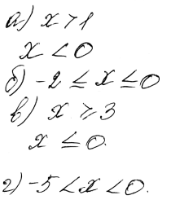 а) x > 1
x < 0
б) -2 ≤ x ≤ 0
в) x ≥ 3
x ≤ 0.
г) -5 < x < 0.